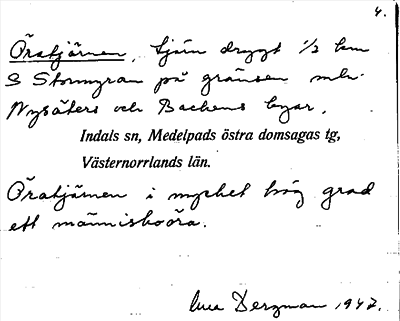 4.
Öratjärnen, tjärn drygt 1/2 km
S Stormyran på gränsen mln.
Nysäters och Backens byar.
Indals sn, Medelpads östra domsagas tg,
Västernorrlands län.
Öratjärnen i mycket hög grad
ett människoöra.
Bergman 1947.